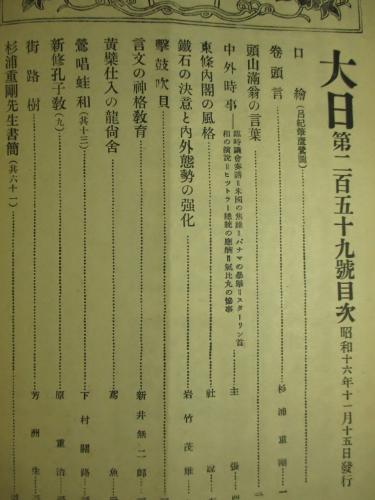 大日第二百五十九號目次 昭和十六年十一月十五日發行
口繪（呂紀雙鷹鷙圖）
卷頭言 杉浦重剛
頭山滿翁の言葉
中外時事 臨時議會奏請＝米國の焦躁＝パナマの暴擧＝スターリン首相の演説＝ヒットラー總統の應酬＝氣比丸の慘事 主張
東條内閣の風格 社説
鐵石の決意と内外態勢の强化 岩竹茂雄
擊鼓吹貝
言文の神格敎育 新井無二郎
黃檗仕入の龍尙舍 鳶魚
鶯唱蛙和（其十三） 下村關路
新修孔子敎（九） 原重治
街路樹 芳洲生
杉浦重剛先生書簡（其六十一）